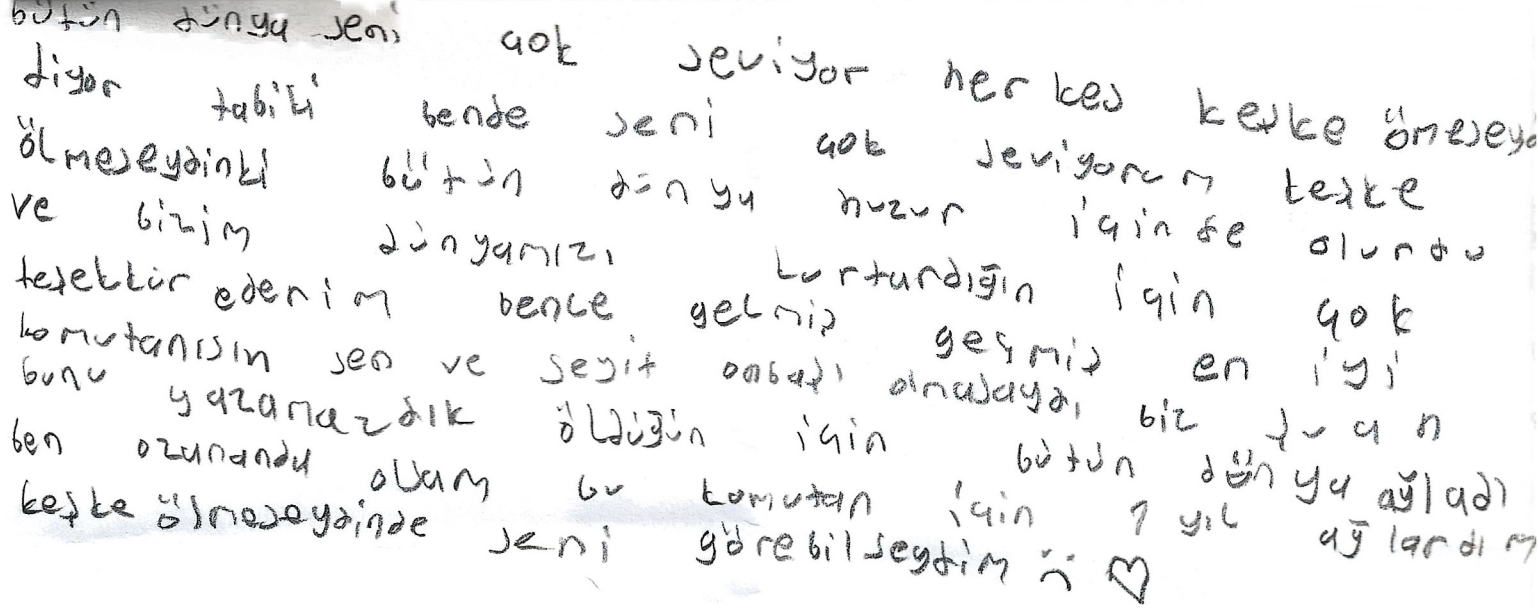 bütün dünya seni çok seviyor herkes keşke ömeseyd
diyor tabiki bende seni çok seviyorum keşke
ölmeseydinki bütün dünya huzur içinde olurdu
ve bizim dünyamızı kurtardığın için çok
teşekkür ederim bence gelmiş geçmiş en iyi
komutanısın sen ve seyit onbaşı olmasaydı biz şuan
bunu yazamazdık öldüğün için bütün dünya ağladı
ben ozamanda olsam bu komutan için 1 yıl ağlardım
keşke ölmeseydinde seni görebilseydim